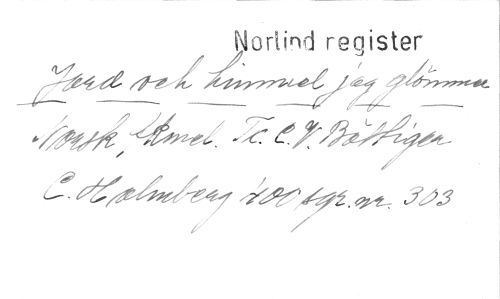 Norlind register
Jord och himmel jag glömmer
Norsk, mel. Tc. C. V. Böttiger
C. Holmberg 400 sgr. nr. 303